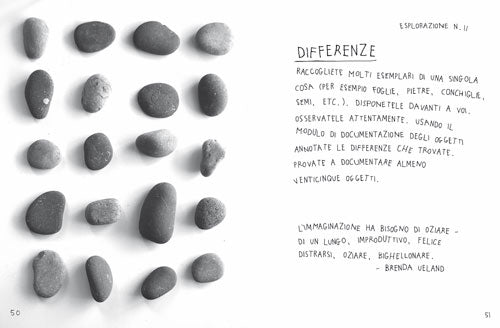 ESPLORAZIONE N. 11
DIFFERENZE
RACCOGLIETE MOLTI ESEMPLARI DI UNA SINGOLA
COSA (PER ESEMPIO FOGLIE, PIETRE, CONCHIGLIE,
SEMI, ETC.). DISPONETELE DAVANTI A VOI.
OSSERVATELE ATTENTAMENTE. USANDO IL
MODULO DI DOCUMENTAZIONE DEGLI OGGETTI
ANNOTATE LE DIFFERENZE CHE TROVATE.
PROVATE A DOCUMENTARE ALMENO
VENTICINQUE OGGETTI.
L'IMMAGINAZIONE HA BISOGNO DI OZIARE –
DI UN LUNGO, IMPRODUTTIVO, FELICE
DISTRARSI, OZIARE, BIGHELLONARE.
- BRENDA UELAND
50
51